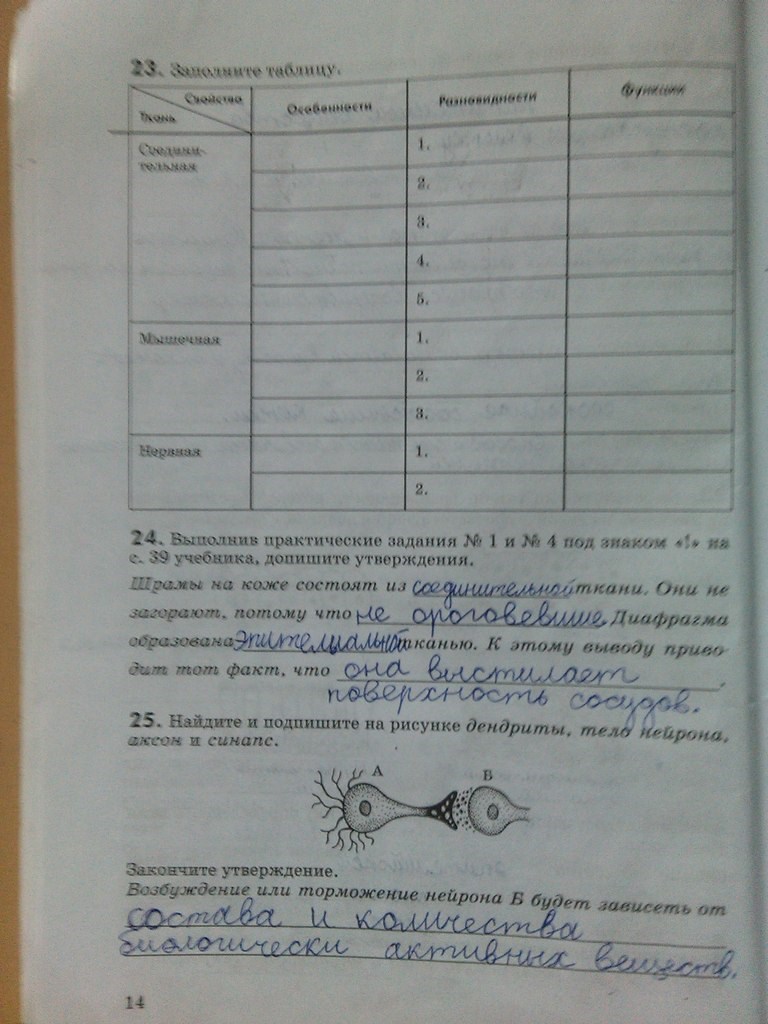 23. Заполните таблицу.
Свойство
Ткань
Особенности
Разновидности
Функции
Соедини-
тельная
1.
2.
3.
4.
5.
Мышечная
1.
2.
3.
Нервная
1.
2.
24. Выполнив практические задания № 1 и № 4 под знаком «!» на
с. 39 учебника, допишите утверждения.
Шрамы на коже состоят из соединительной ткани. Они не
загорают, потому что не ороговевшие. Диафрагма
образована эпителиальной тканью. К этому выводу приво-
дит тот факт, что она выстилает
поверхность сосудов.
25. Найдите и подпишите на рисунке дендриты, тело нейрона,
аксон и синапс.
А Б
Закончите утверждение.
Возбуждение или торможение нейрона Б будет зависеть от
состава и количества
биологически активных веществ.
14